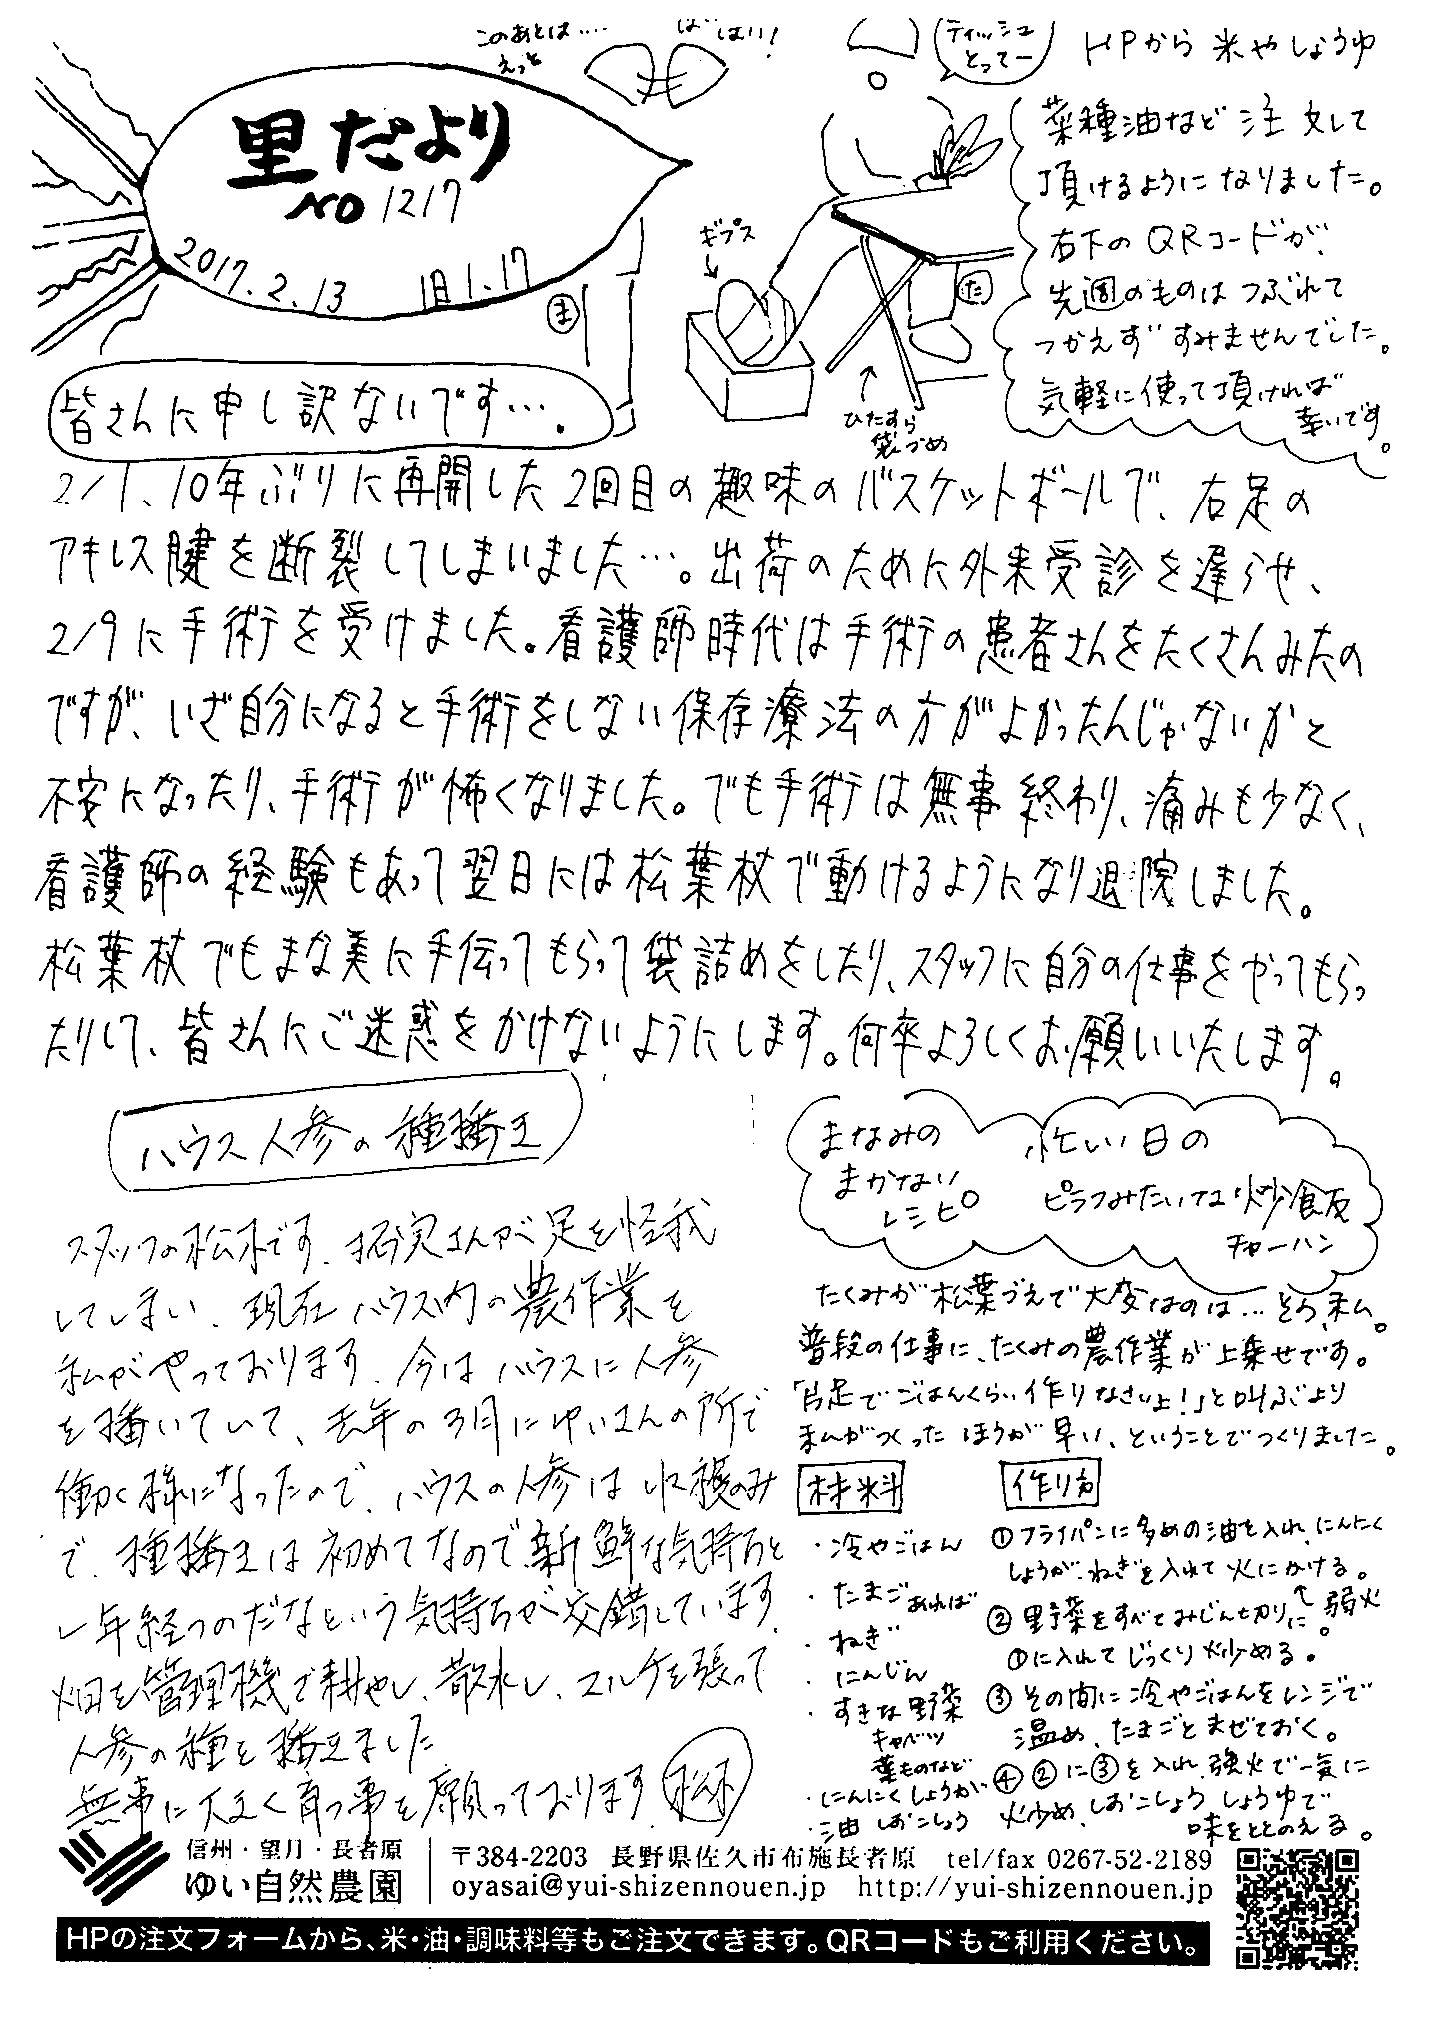 里だより
NO 1217
2017.2.13 旧1.17
このあとは....
えっと
ば
はい!
ティッシュ
とってー
ギプス
ひたすら
袋づめ
ま
た
HPから 米やしょうゆ
菜種油など 注文して
頂けるようになりました。
右下のQRコードが、
先週のものは つぶれて
つかえず すみませんでした。
気軽に使って頂ければ
幸いです。
皆さんに申し訳ないです…。
2/1、10年ぶりに再開した2回目の趣味のバスケットボールで、右足の
アキレス腱を断裂してしまいました…。出荷のために外来受診を遅らせ、
2/9に手術を受けました。看護師時代は手術の患者さんをたくさんみたの
ですが、いざ自分になると手術をしない保存療法の方がよかったんじゃないかと
不安になったり、手術が怖くなりました。でも手術は無事終わり、痛みも少なく、
看護師の経験もあって翌日には松葉杖で動けるようになり退院しました。
松葉杖でもまな美に手伝ってもらって袋詰めをしたり、スタッフに自分の仕事をやってもらっ
たりして、皆さんにご迷惑をかけないようにします。何卒よろしくお願いいたします。
ハウス人参の種播き
スタッフの松木です。拓実さんが足を怪我
してしまい、現在ハウス内の農作業を
私がやっております。今はハウスに人参
を播いていて、去年の3月にゆいさんの所で
働く様になったので、ハウスの人参は収穫のみ
で、種播きは初めてなので、新鮮な気持ちと
一年経つのだなという気持ちが交錯しています。
畑を管理機で耕やし、散水し、マルチを張って
人参の種を播きました
無事に大きく育つ事を願っております。松木
まなみの
まかない
レシピ
忙しい日の
ピラフみたいな炒飯
チャーハン
たくみが松葉づえで大変なのは…そう、私。
普段の仕事に、たくみの農作業が上乗せです。
「片足でごはんくらい作りなさいよ!」と叫ぶより
私がつくったほうが早い、ということでつくりました。
材料
・冷やごはん
・たまご あれば
・ねぎ
・にんじん
・すきな野菜
キャベツ
葉ものなど
・にんにくしょうが
・油 しおこしょう
作り方
①フライパンに多めの油を入れ、にんにく
しょうが、ねぎを入れて火にかける。
↑弱火
②野菜をすべてみじん切りに。
①に入れてじっくり炒める。
③その間に冷やごはんをレンジで
温め、たまごとまぜておく。
④②に③を入れ、強火で一気に
炒め、しおこしょう しょうゆで
味をととのえる。
信州・望月・長者原
ゆい自然農園
〒384-2203 長野県佐久市布施長者原 tel/fax 0267-52-2189
oyasai@yui-shizennouen.jp http://yui-shizennouen.jp
HPの注文フォームから、米・油・調味料等もご注文できます。QRコードもご利用ください。